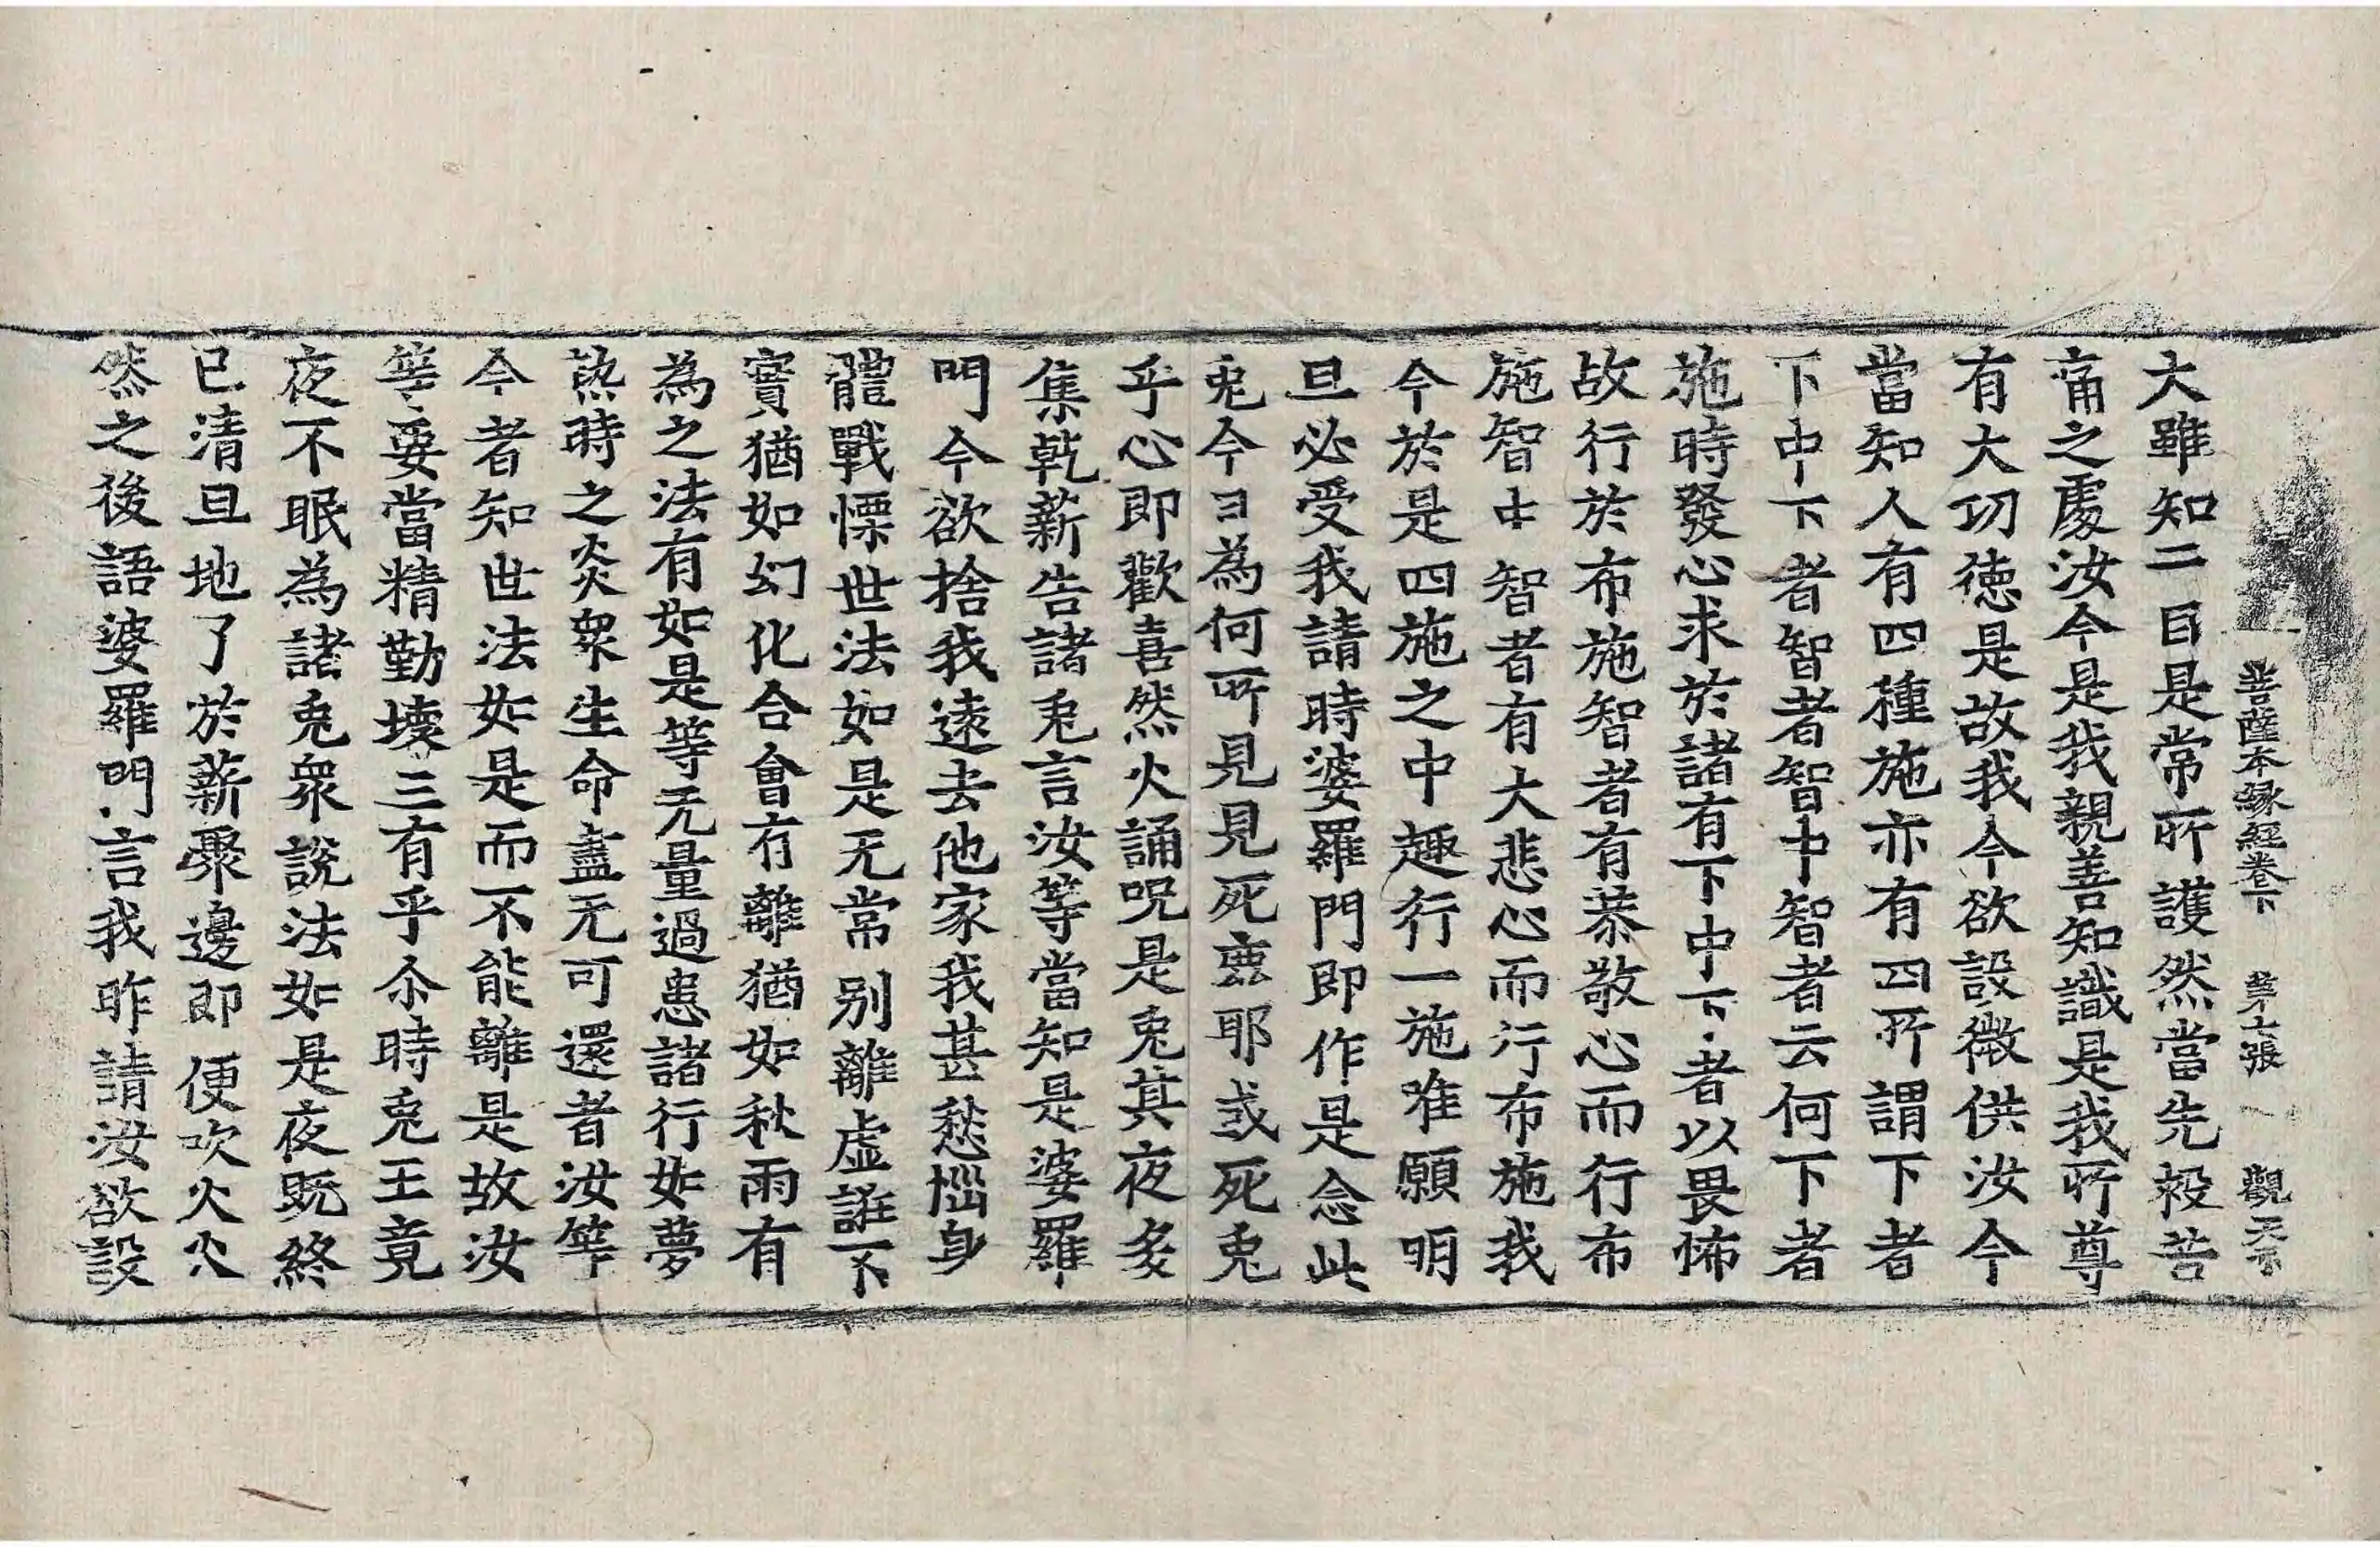 菩薩本縁經卷下 第七張 觀 天不
大雖知二目是常所護然當先救苦
痛之處汝今是我親善知識是我所尊
有大功徳是故我今欲設微供汝今
當知人有四種施亦有四所謂下者
下中下者智者智中智者云何下者
施時發心求於諸有下中下者以畏怖
故行於布施智者有恭敬心而行布
施智中智者有大悲心而行布施我
今於是四施之中趣行一施唯願明
旦必受我請時婆羅門即作是念此
兎今日為何所見見死鹿耶或死兎
乎心即歡喜然火誦呪是兎其夜多
集乾薪告諸兎言汝等當知是婆羅
門今欲捨我遠去他家我甚愁惱身
體戰慄世法如是无常別離虚誑不
實猶如幻化合會有離猶如秋雨有
為之法有如是等无量過患諸行如夢
熱時之炎衆生命盡无可還者汝等
今者知世法如是而不能離是故汝
等要當精勤壞三有乎尒時兎王竟
夜不眠為諸兎衆說法如是夜既終
已清旦地了於薪聚邊即便吹火火
然之後語婆羅門言我昨請汝欲設